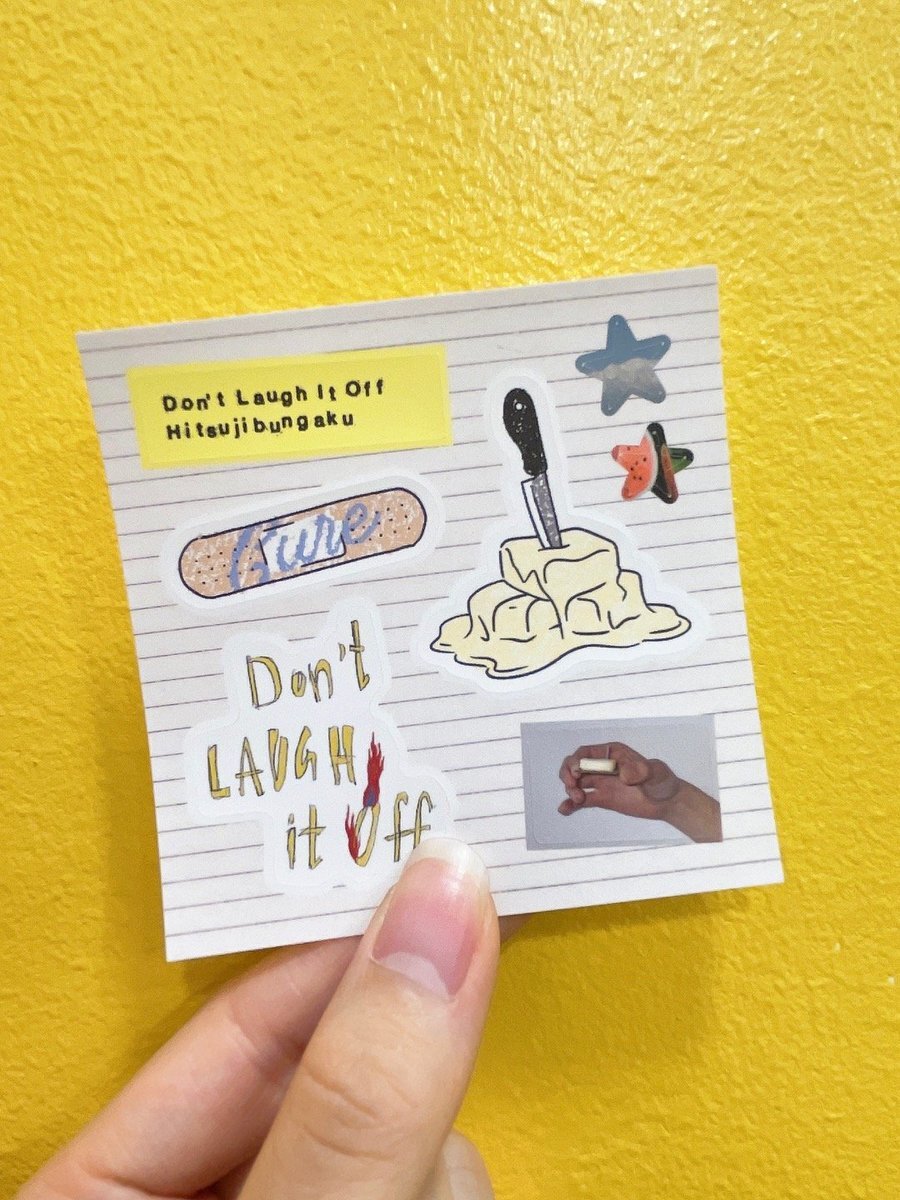 Don't Laugh It Off
Hitsujibungaku
Cure
Don't
LAUGH
it Off